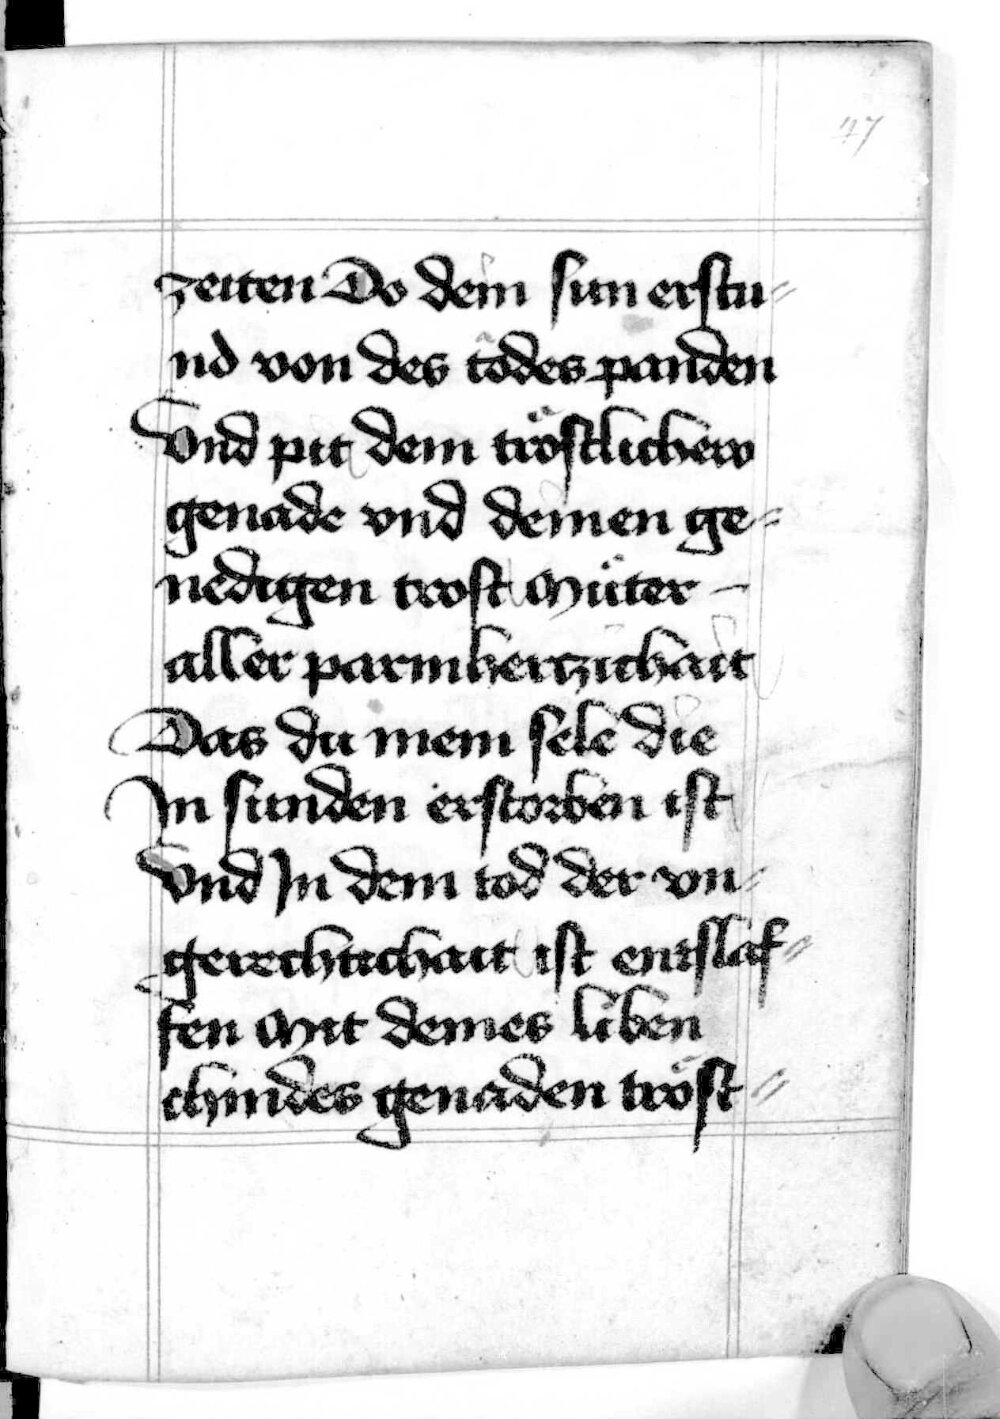 47
zeiten Do dein sun erstu-
nd von des todes panden
Vnd pit dem tröstlichew
genade vnd deinen ge-
nedigen trost Müter
aller parmhertzichait
Das du mein sele die
In sunden erstorben ist
Vnd In dem tod der vn-
gerechtichait ist entslaf-
fen Mit deines liben
chindes genaden tröst-